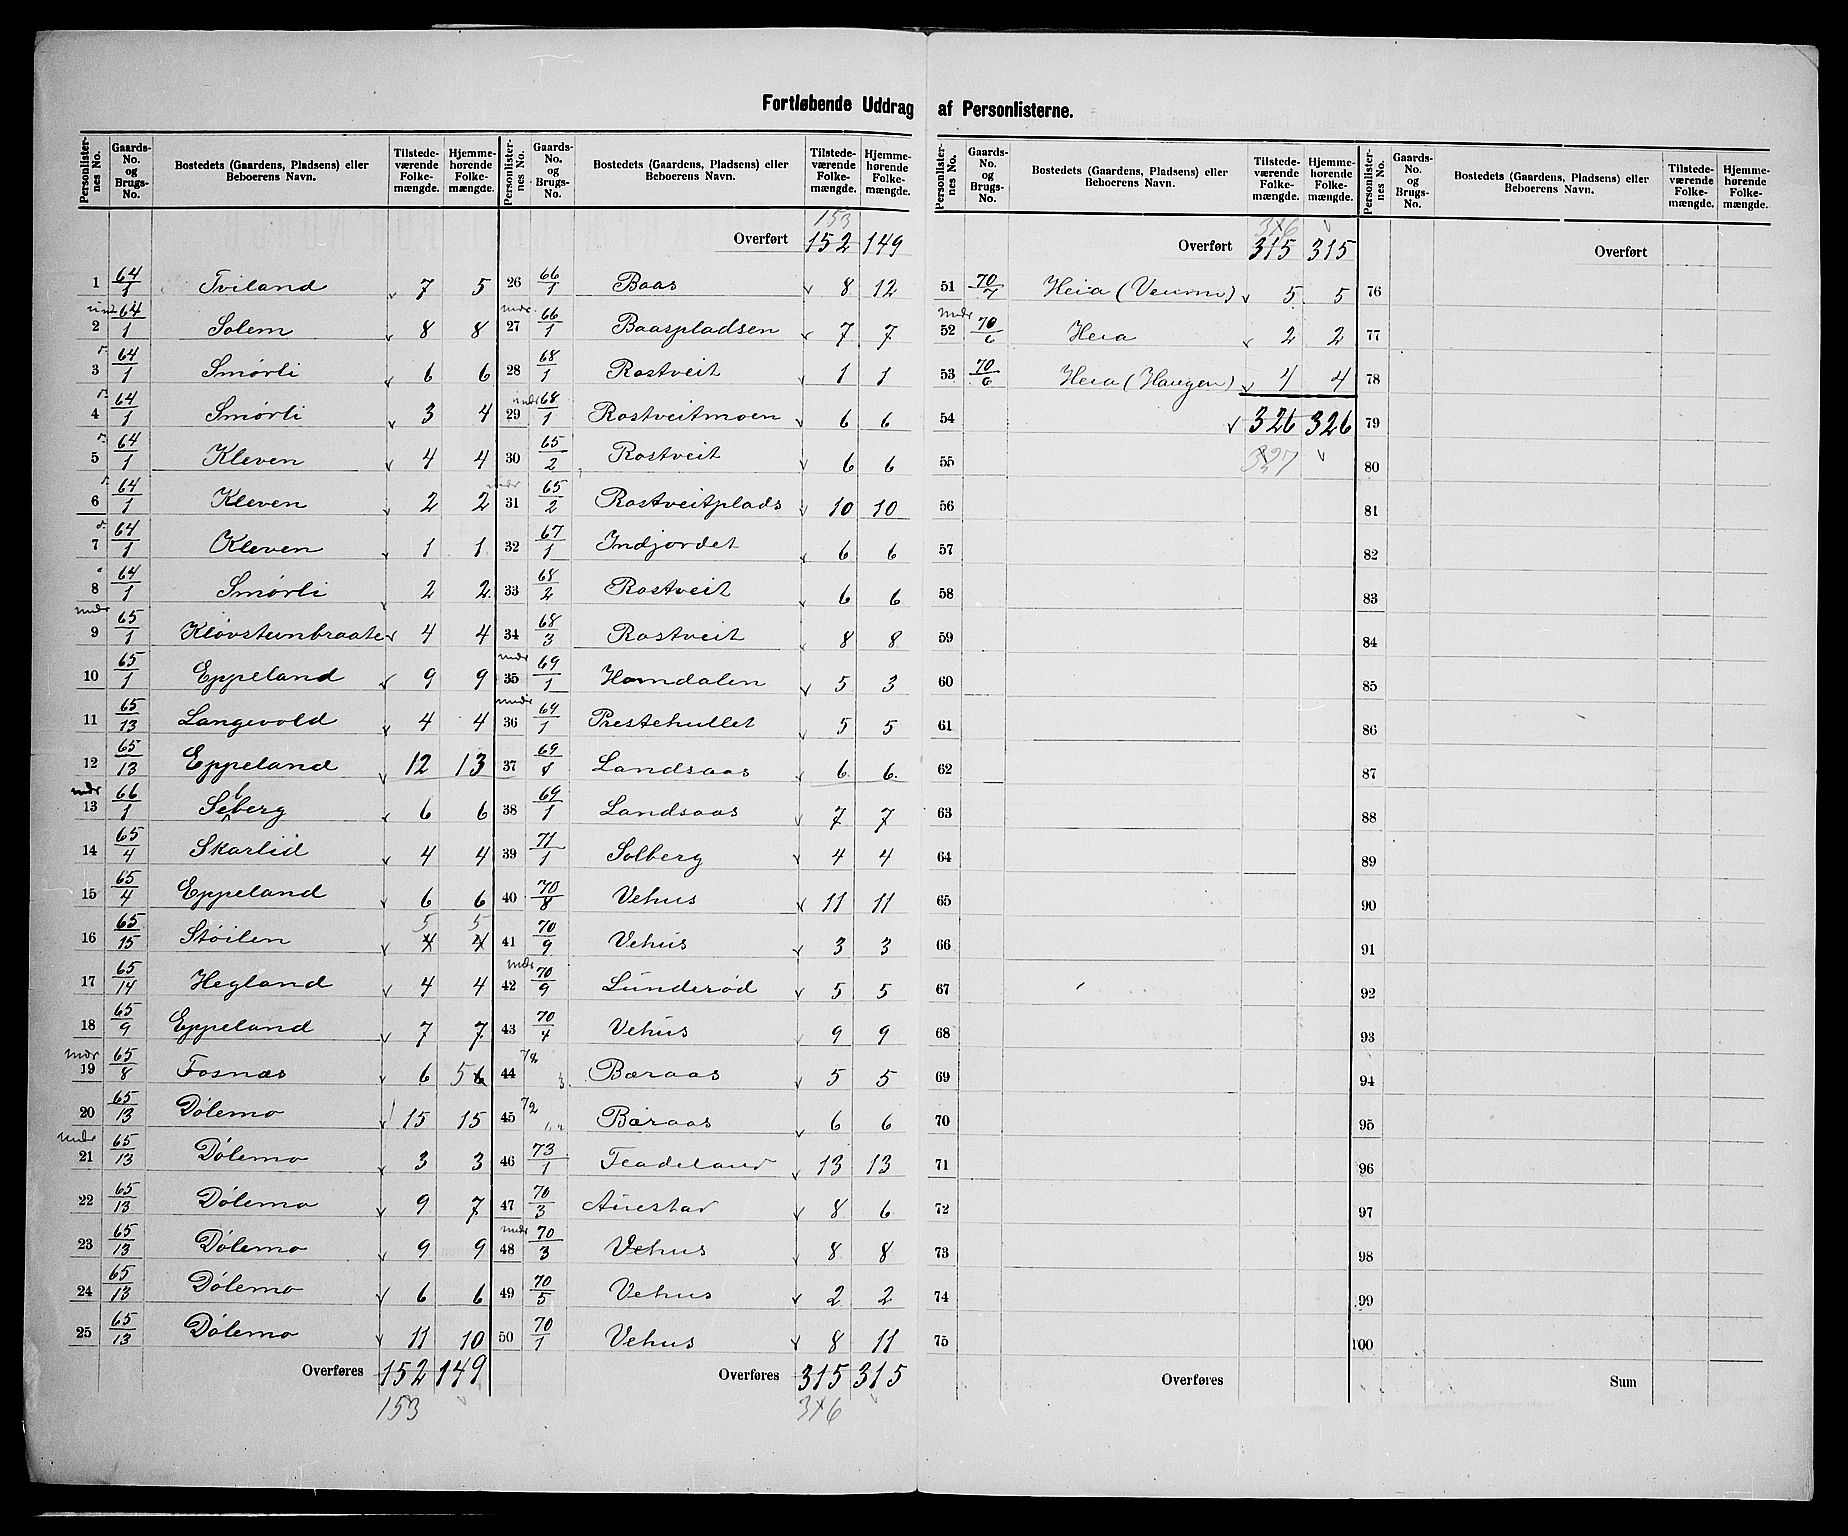 Fortløbende Uddrag af Personlisterne.
Personlisternes No. | Gaards-No. og Brugs-No. | Bostedets (Gaardens, Pladsens) eller Beboerens Navn. | Tilstedeværende Folkemængde. | Hjemmehørende Folkemængde.
1 64/1 Tviland 7 5
2 64/1 Solem 8 8
3 64/1 Smørli 6 6
4 64/1 Smørli 3 4
5 64/1 Kleven 4 4
6 64/1 Kleven 2 2
7 64/1 Kleven 1 1
8 64/1 Smørli 2 2
mdr
9 65/1 Kløvsteinbraate 4 4
10 65/1 Eppeland 9 9
11 65/13 Langevold 4 4
12 65/13 Eppeland 12 13
mdr
13 66/1 Seberg 6 6
14 65/4 Skarlid 4 4
15 65/4 Eppeland 6 6
5 5
16 65/15 Støilen 4 4
17 65/14 Hegland 4 4
18 65/9 Eppeland 7 7
mdr
19 65/8 Fosnæs 6 5 6
20 65/13 Dølemo 15 15
mdr
21 65/13 Dølemo 3 3
22 65/13 Dølemo 9 7
23 65/13 Dølemo 9 9
24 65/13 Dølemo 6 6
25 65/13 Dølemo 11 10
Overføres 152 149
153
Personlisternes No. | Gaards-No. og Brugs-No. | Bostedets (Gaardens, Pladsens) eller Beboerens Navn. | Tilstedeværende Folkemængde. | Hjemmehørende Folkemængde.
153
Overført 152 149
26 66/1 Baas 8 12
mdr
27 66/1 Baaspladsen 7 7
28 68/1 Rostveit 1 1
mdr
29 68/1 Rostveitmoen 6 6
30 65/2 Rostveit 6 6
mdr
31 65/2 Rostveitplads 10 10
32 67/1 Indjordet 6 6
33 68/2 Rostveit 6 6
34 68/3 Rostveit 8 8
mdr
35 69/1 Homdalen 5 3
mdr
36 69/1 Prestehullet 5 5
37 69/1 Landsaas 6 6
38 69/1 Landsaas 7 7
39 71/1 Solberg 4 4
40 70/8 Vehus 11 11
41 70/9 Vehus 3 3
mdr
42 70/9 Lunderød 5 5
43 70/4 Vehus 9 9
44 72 Bæraas 5 5
45 72 Bæraas 6 6
46 73/1 Fladeland 13 13
47 70/3 Auestad 8 6
mdr
48 70/3 Vehus 8 8
49 70/5 Vehus 2 2
50 70/1 Vehus 8 11
Overføres 315 315
316
Personlisternes No. | Gaards-No. og Brugs-No. | Bostedets (Gaardens, Pladsens) eller Beboerens Navn. | Tilstedeværende Folkemængde. | Hjemmehørende Folkemængde.
316
Overført 315 315
51 70/7 Heia 5 5
mdr
52 70/6 Heia 2 2
53 70/6 Heia (Haugen) 4 4
54 326 326
55 327
56
57
58
59
60
61
62
63
64
65
66
67
68
69
70
71
72
73
74
75
Overføres
Personlisternes No. | Gaards-No. og Brugs-No. | Bostedets (Gaardens, Pladsens) eller Beboerens Navn. | Tilstedeværende Folkemængde. | Hjemmehørende Folkemængde.
Overført
76
77
78
79
80
81
82
83
84
85
86
87
88
89
90
91
92
93
94
95
96
97
98
99
100
Sum